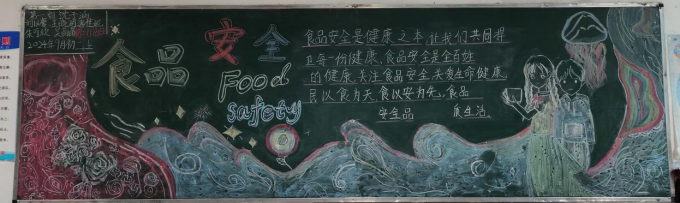 食品安全
Food
safety
食品安全是健康之本,让我们共同捍
卫每一份健康,食品安全是全百姓
的健康,关注食品安全,关爱生命健康,
民以食为天,食以安为先,食品
安全品 质生活。
2024年 月初二上